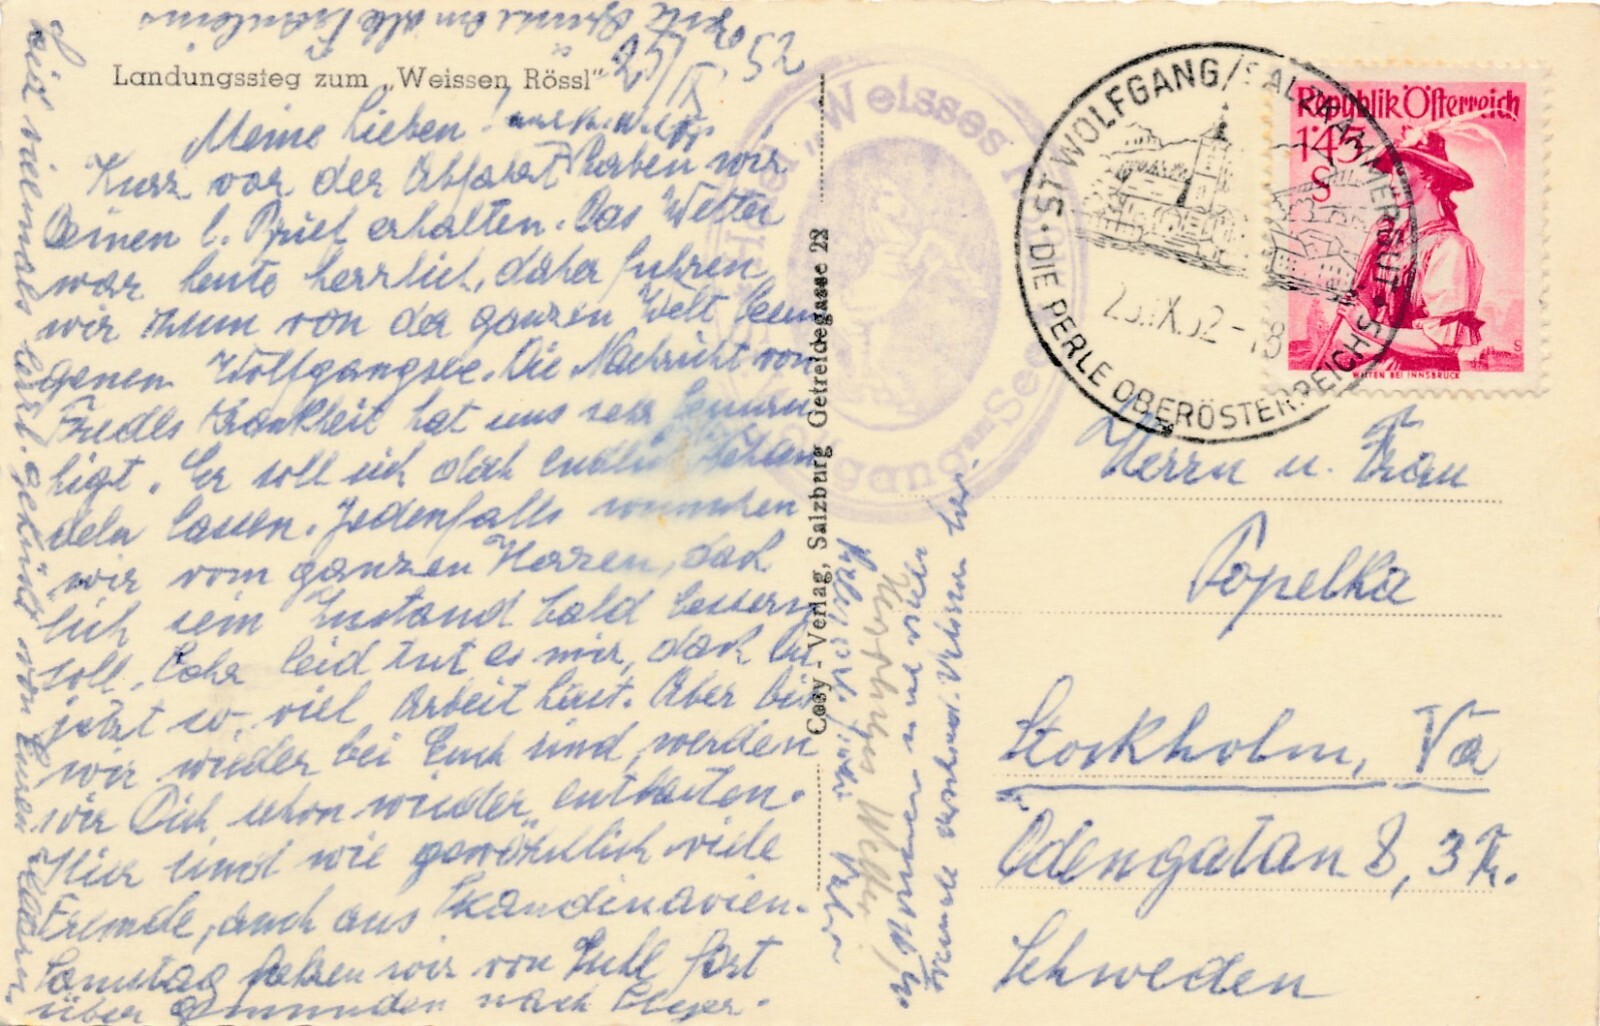 Landungssteg zum „Weissen Rössl"
25/IX 52
Meine Lieben!
Kurz vor der Abfahrt haben wir
Deinen l. Brief erhalten. Das Wetter
war heute herrlich, daher fuhren
wir zum von der ganzen Welt besun
genen Wolfgangsee. Die Nachricht von
Friedls Krankheit hat uns sehr beunru
higt. Er soll sich doch endlich behan
deln lassen. Jedenfalls wünschen
wir vom ganzen Herzen, dass
sich sein Zustand bald bessern
soll. Sehr leid tut es mir, dass Du
jetzt so viel Arbeit hast. Aber bis
wir wieder bei Euch sind, werden
wir Dich schon wieder entlasten.
Hier sind wie gewöhnlich viele
Fremde, auch aus Skandinavien.
Samstag fahren wir von Ischl fort
über Gmunden nach Steyr.
Seid vielmals herzl. geküsst von Euren Eltern.
Gute Grüsse an alle
Cosy-Verlag, Salzburg Getreidegasse 22
Hotel „Weisses Rössl"
St. Wolfgang am See
ST. WOLFGANG/SALZKAMMERGUT
DIE PERLE OBERÖSTERREICHS
25.IX.52-18
Republik Österreich
1·45
S
WILTEN BEI INNSBRUCK
Herrn u. Frau
Popelka
Stockholm, Va
Odengatan 8, 3 Tr.
Schweden